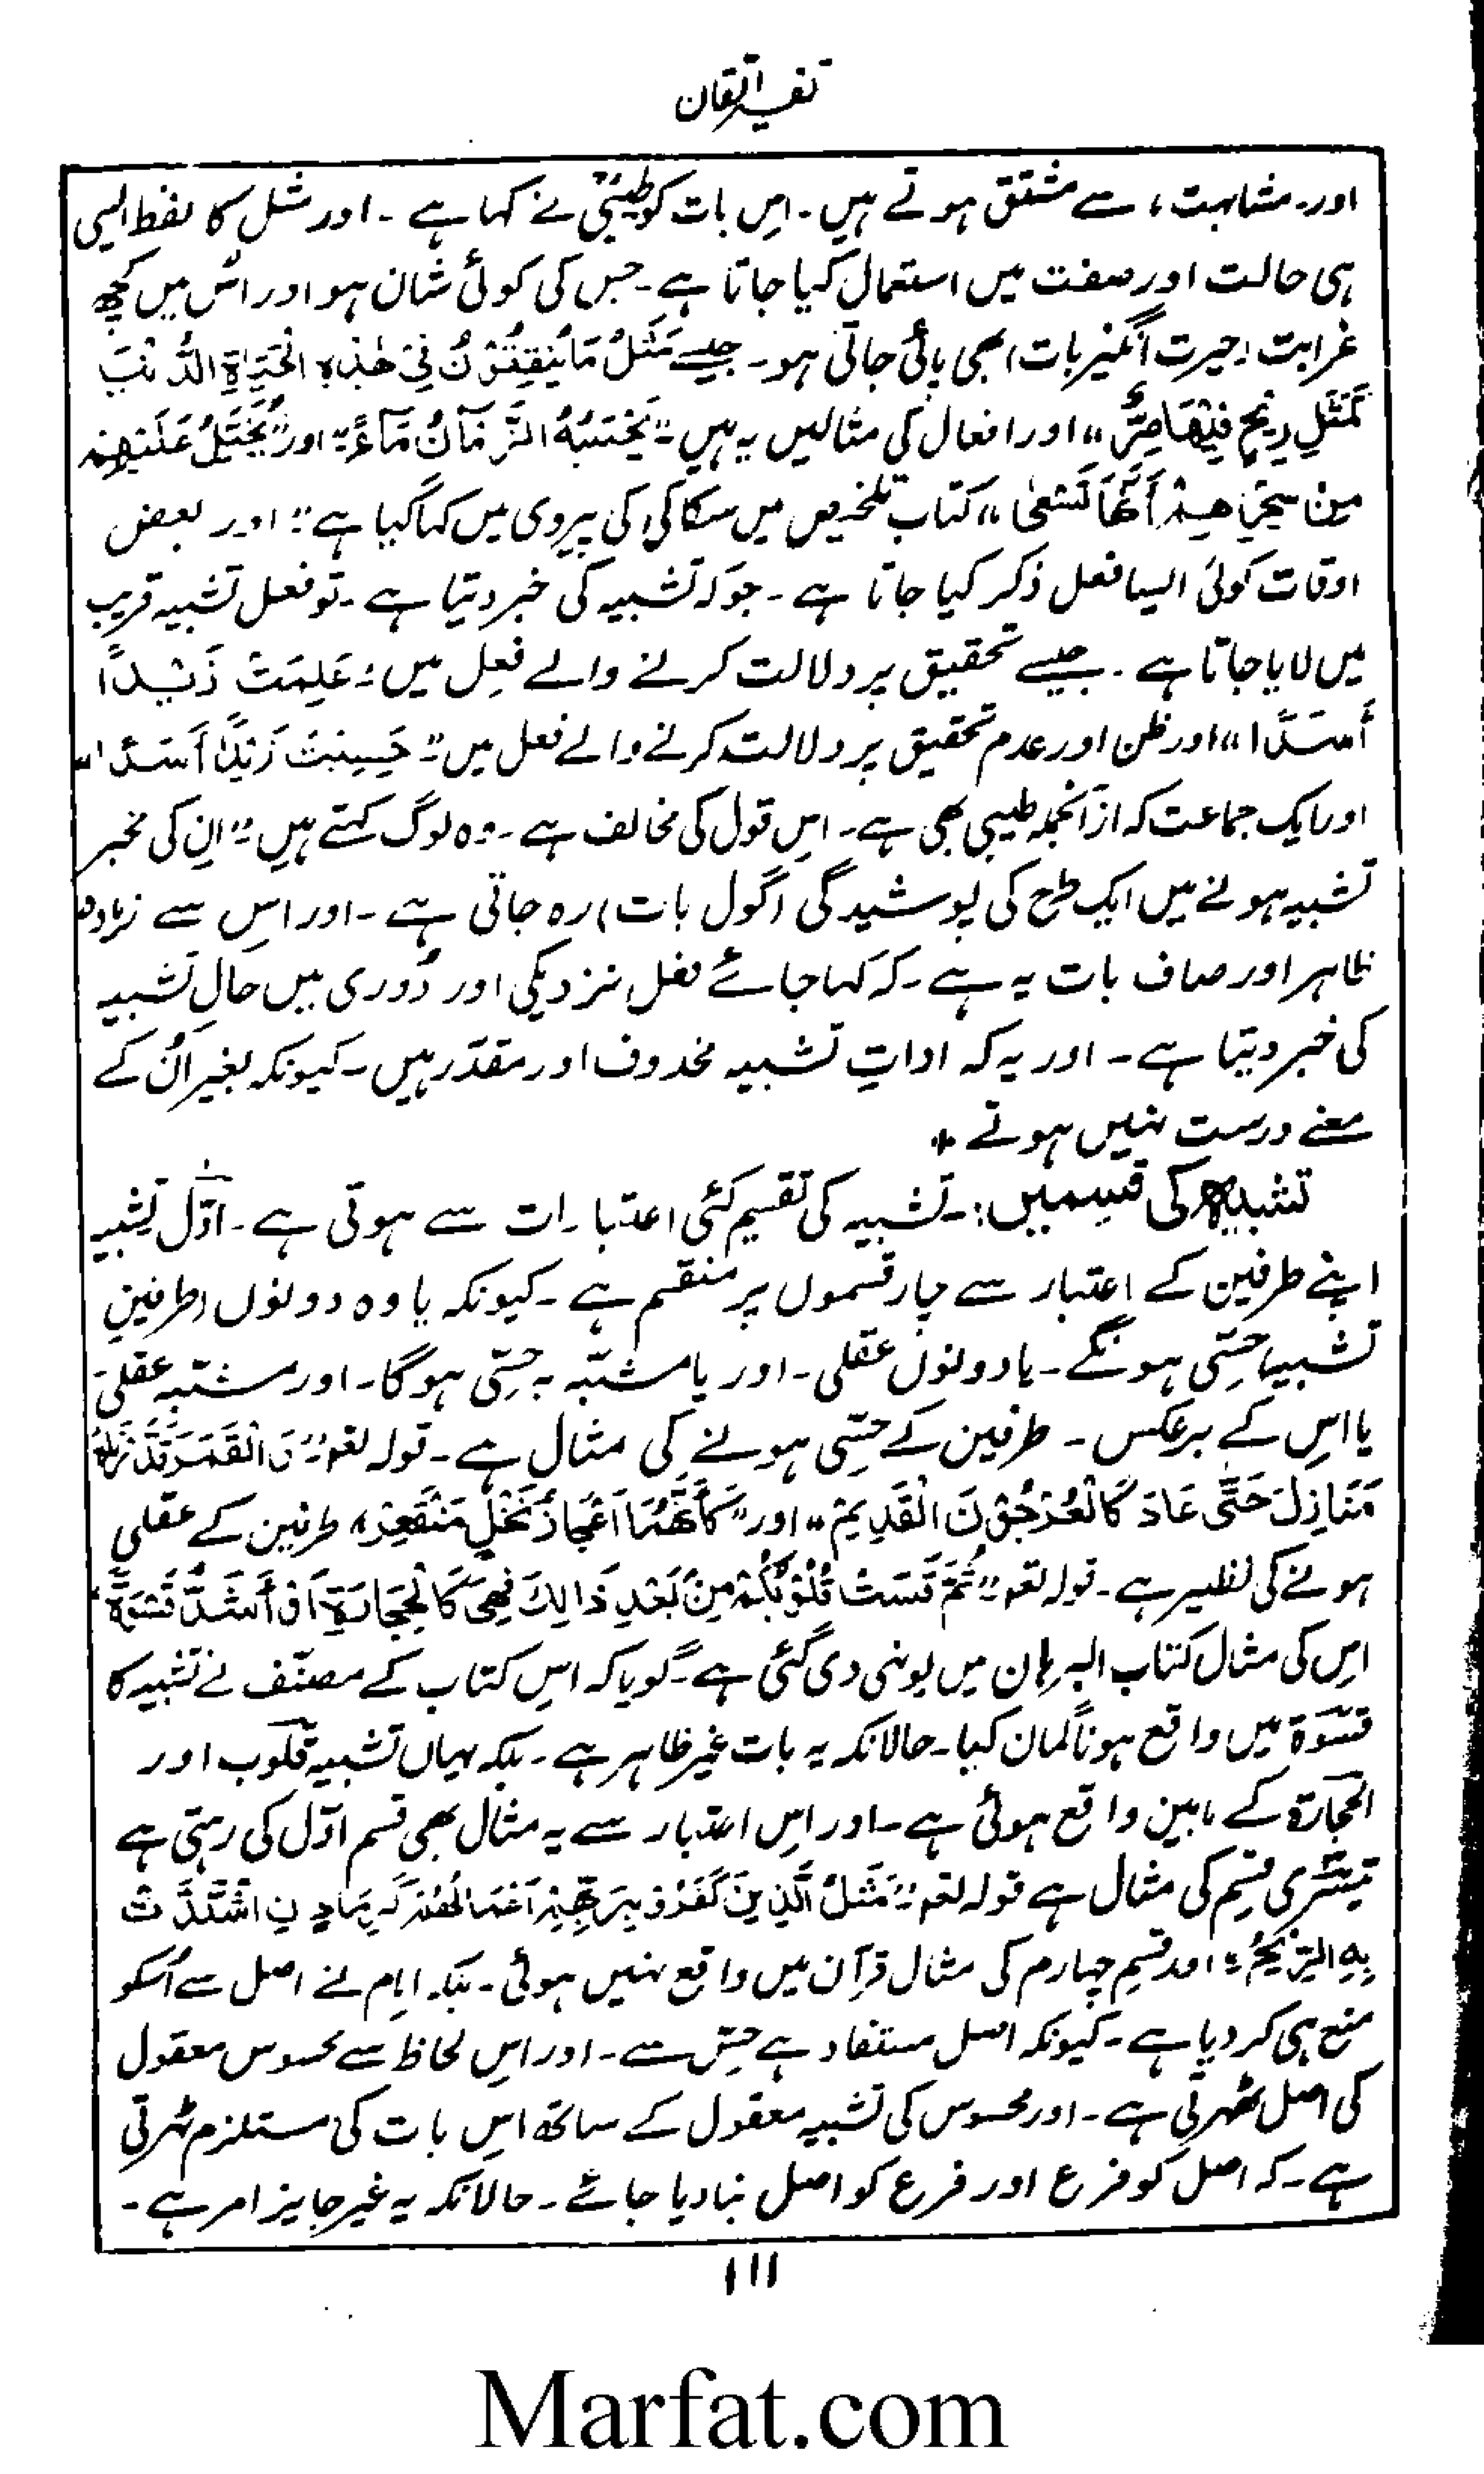 تفسیر اتقان
اور۔ مشابہت، سے مشتق ہوتے ہیں۔ اِس بات کو طیبیؒ نے کہا ہے۔ اور مثل کا لفظ ایسی
ہی حالت اور صفت میں استعمال کیا جاتا ہے۔ جس کی کوئی شان ہو اور اُس میں کچھ
غرابت (حیرت انگیز بات) بھی پائی جاتی ہو۔ جیسے مَثَلُ مَا يُنفِقُوْنَ فِيْ هٰذِهِ الْحَيٰوةِ الدُّنْيَا
كَمَثَلِ رِيْحٍ فِيْهَا صِرٌّ" اور افعال کی مثالیں یہ ہیں " يَحْسَبُهُ الظَّمْاٰنُ مَآءً " اور " يُخَيَّلُ عَلَيْهِمْ
مِنْ سِحْرِهِمْ اَنَّهَا تَسْعٰى " کتاب تلخیص میں سکاکی کی پیروی میں کہا گیا ہے " اور بعض
اوقات کوئی ایسا فعل ذکر کیا جاتا ہے۔ جو کہ تشبیہ کی خبر دیتا ہے۔ تو فعل تشبیہ قریب
میں لایا جاتا ہے۔ جیسے تحقیق پر دلالت کرنے والے فِعل میں : عَلِمْتُ زَيْداً
أَسَدًا " اور ظن اور عدم تحقیق پر دلالت کرنے والے فعل میں " حَسِبْتُ زَيْداً أَسَداً "
اور ایک جماعت کہ ازآنجملہ طیبی بھی ہے۔ اِس قول کی مخالف ہے۔ وہ لوگ کہتے ہیں " اِن کی مخبر
تشبیہ ہونے میں ایک طرح کی پوشیدگی (گول بات) رہ جاتی ہے۔ اور اس سے زیادہ
ظاہر اور صاف بات یہ ہے۔ کہ کہا جائے فعل نزدیکی اور دُوری میں حالِ تشبیہ
کی خبر دیتا ہے۔ اور یہ کہ اداتِ تشبیہ محذوف اور مقدّر ہیں۔ کیونکہ بغیر اُن کے
معنے درست نہیں ہوتے ٭
تشبیہ کی قسمیں :۔ تشبیہ کی تقسیم کئی اعتبارات سے ہوتی ہے۔ اوّل تشبیہ
اپنے طرفین کے اعتبار سے چار قسموں پر منقسم ہے۔ کیونکہ یا وہ دونوں (طرفینِ
تشبیہ) حِسّی ہونگے۔ یا دونوں عقلی۔ اور یا مشبّہ بہ حِسّی ہوگا۔ اور مشبّہ عقلی
یا اِس کے برعکس۔ طرفین کے حِسّی ہونے کی مثال ہے۔ قولہ تعہ " وَالْقَمَرَ قَدَّرْنٰهُ
مَنَازِلَ حَتّٰى عَادَ كَالْعُرْجُوْنِ الْقَدِيْمِ " اور " كَاَنَّهُمْ اَعْجَازُ نَخْلٍ مُّنْقَعِرٍ " طرفین کے عقلی
ہونے کی نظیر ہے۔ قولہ تعہ " ثُمَّ قَسَتْ قُلُوْبُكُمْ مِنْ بَعْدِ ذَالِكَ فَهِيَ كَالْحِجَارَةِ اَوْ أَشَدُّ قَسْوَةً "
اِس کی مثال کتاب البرہان میں یونہی دی گئی ہے۔ گویا کہ اِس کتاب کے مصنّف نے تشبیہ کا
قسوۃ میں واقع ہونا گمان کیا۔ حالانکہ یہ بات غیر ظاہر ہے۔ بلکہ یہاں تشبیہ قلوب اور
الحجارۃ کے مابین واقع ہوئی ہے۔ اور اِس اعتبار سے یہ مثال بھی قسم اوّل کی رہتی ہے
تیسری قسم کی مثال ہے قولہ تعہ " مَثَلُ الَّذِيْنَ كَفَرُوْا بِرَبِّهِمْ اَعْمَالُهُمْ كَرَمَادِنِ اشْتَدَّتْ
بِهِ الرِّيْحُ " اور قسمِ چہارم کی مثال قرآن میں واقع نہیں ہوئی۔ بلکہ امام نے اصل سے اُسکو
منع ہی کر دیا ہے۔ کیونکہ اصل مستفاد ہے حِسّ سے۔ اور اِس لحاظ سے محسوس معقول
کی اصل ٹھہرتی ہے۔ اور محسوس کی تشبیہ معقول کے ساتھ اِس بات کی مستلزم ٹہرتی
ہے۔ کہ اصل کو فرع اور فرع کو اصل بنا دیا جائے۔ حالانکہ یہ غیر جایز امر ہے۔
۱۱۱
Marfat.com